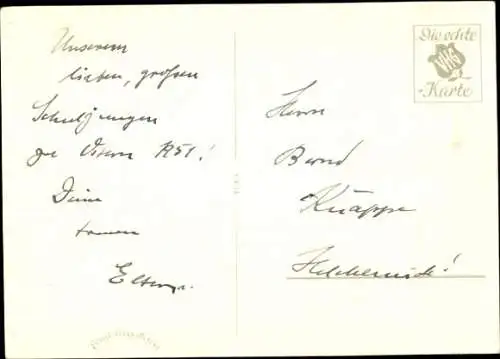 Unserem
lieben, großen
Schuljungen
zu Ostern 1951!
Deine
treuen
Eltern.
Die echte
VHG
Karte
Herrn
Bernd
Knappe